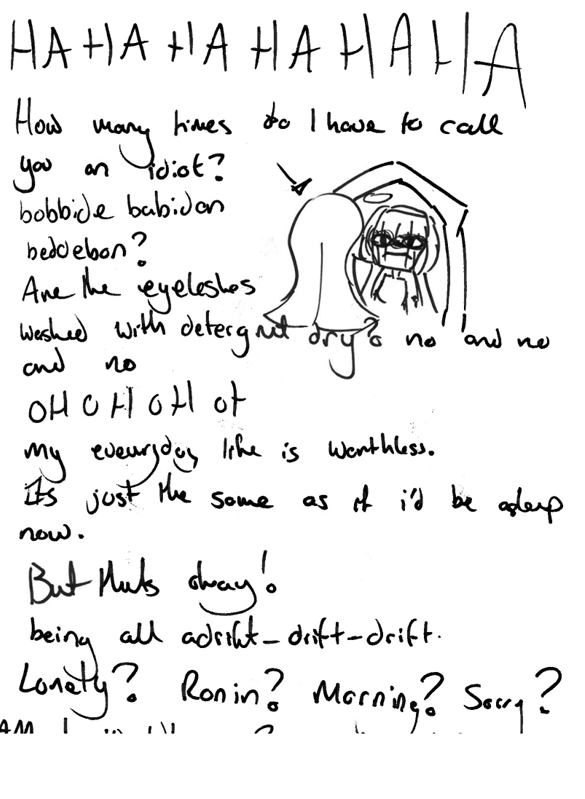 HA HA HA HA HA HA
How many times do I have to call
you an idiot?
bobbide babidan
beddebon?
Are the eyelashes
washed with detergent dry & no and no
and no
OH OH OH OH
my everyday life is worthless.
its just the same as if i'd be asleep
now.
But thats okay!
being all adrift-drift-drift.
Lonely? Ronin? Morning? Sorry?
AM I